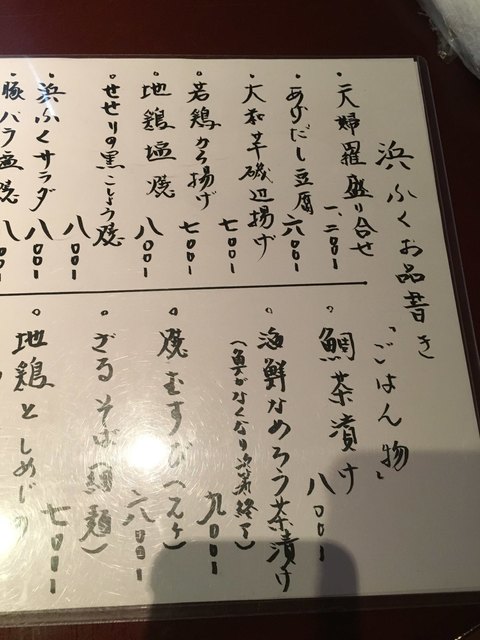 浜ふくお品書き
・天婦羅盛り合せ 一、二〇〇
・あげだし豆腐 六〇〇
・大和芋磯辺揚げ 七〇〇
・若鶏から揚げ 七〇〇
・地鶏塩焼 八〇〇
・せせりの黒こしょう焼 八〇〇
・浜ふくサラダ 八〇〇
・豚バラ塩焼 八〇〇
「ごはん物」
・鯛茶漬け 八〇〇
・海鮮なめろう茶漬け 九〇〇
(魚がなくなり次第終了)
・焼むすび(二ヶ) 六〇〇
・ざるそば(細麺) 七〇〇
・地鶏としめじの